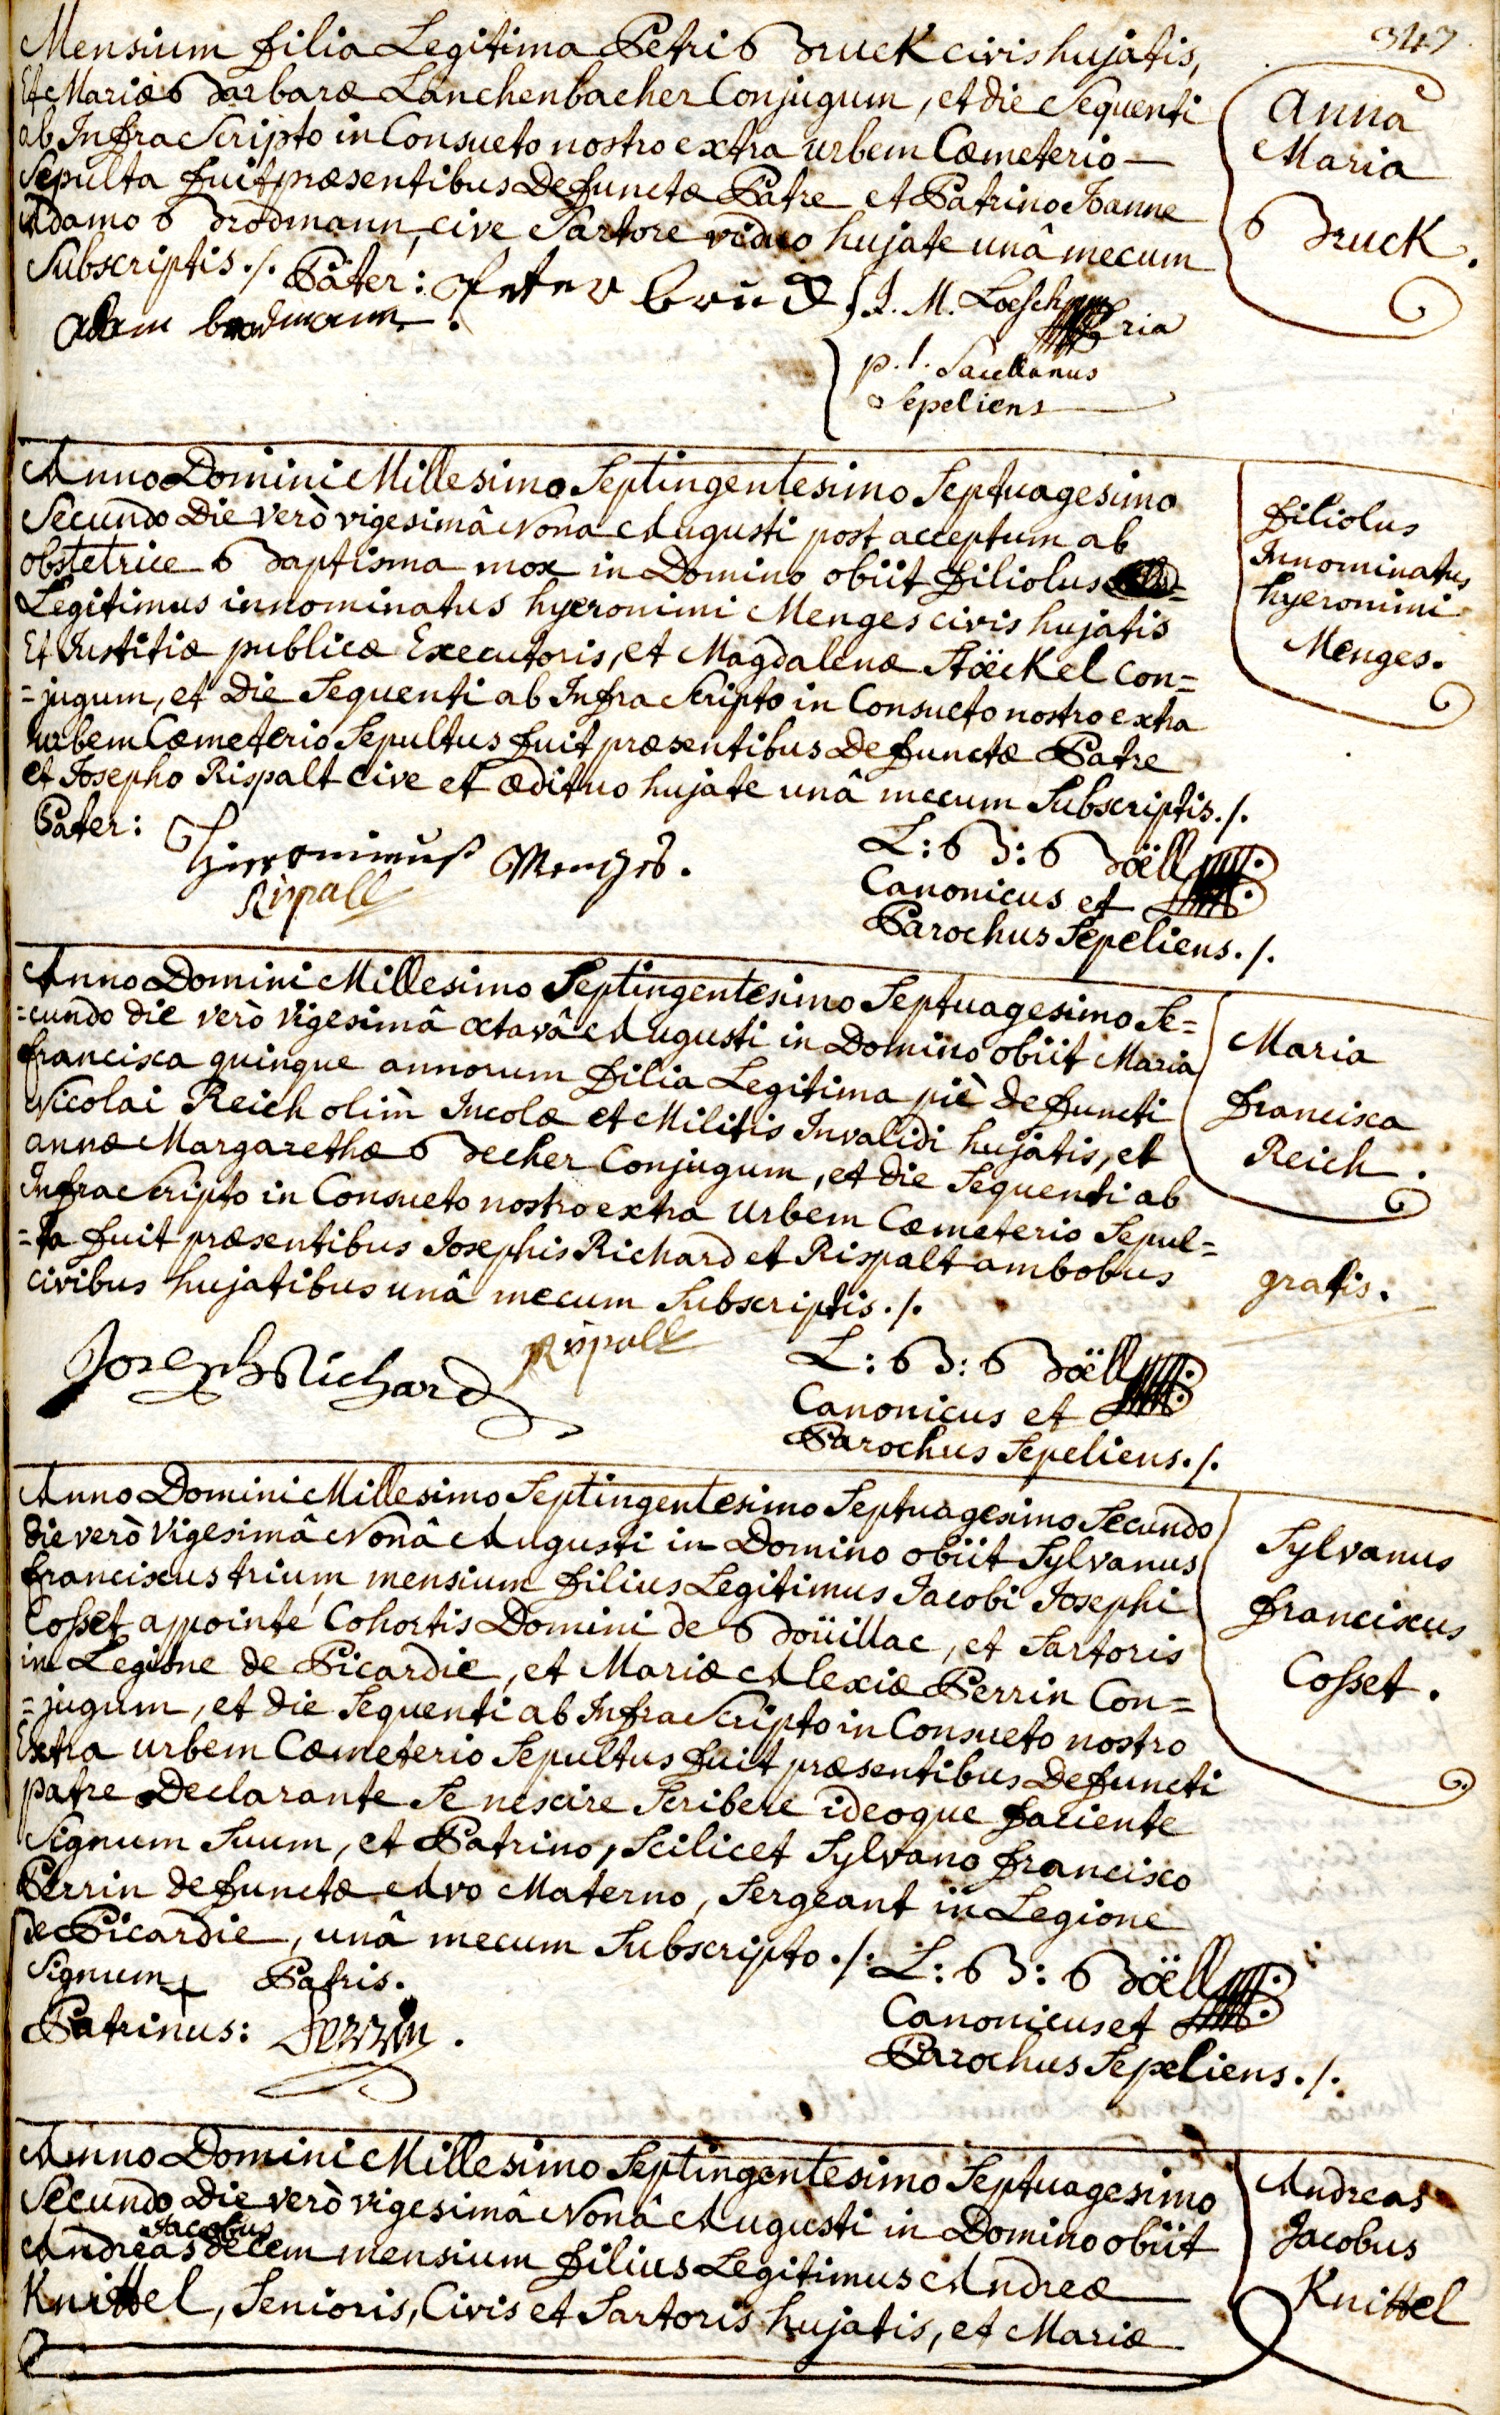 347
Mensium filia Legitima Petri Bruck civis hujatis,
Et Mariæ Barbaræ Lanchenbacher Conjugum, et die Sequenti
ab InfraScripto in Consueto nostro extra urbem Cæmeterio
Sepulta fuit præsentibus Defunctæ Patre et Patrino Joanne
Adamo Brodmann, cive Sartore viduo hujate unâ mecum
Subscriptis ./. Pater: Peter bruck
adam brodmann.
J. M. Loesch
p. t. Sacellanus
Sepeliens
Anna
Maria
Bruck.
Anno Domini Millesimo Septingentesimo Septuagesimo
Secundo Die verò vigesimâ Nona Augusti post acceptum ab
obstetrice Baptisma mox in Domino obiit filiolus
Legitimus innominatus hyeronimi Menges civis hujatis
Et Justitiæ publicæ Executoris, et Magdalenæ Stöeckel Con=
=jugum, et Die Sequenti ab InfraScripto in Consueto nostro extra
urbem Cæmeterio Sepultus fuit præsentibus Defunctæ Patre
et Josepho Rispalt Cive et ædituo hujate unâ mecum Subscriptis ./.
Pater: Hieronimuß Menges.
Rispall
L: B: Böell
Canonicus et
Parochus Sepeliens ./.
filiolus
Innominatus
hyeronimi
Menges.
Anno Domini Millesimo Septingentesimo Septuagesimo Se=
=cundo die verò Vigesimâ octavâ Augusti in Domino obiit Maria
francisca quinque annorum filia Legitima piè defuncti
Nicolai Reich olim Incolæ et Militis Invalidi hujatis, et
annæ Margarethæ Becher Conjugum, et die Sequenti ab
InfraScripto in Consueto nostro extra Urbem Cæmeterio Sepul=
=ta fuit præsentibus Josephis Richard et Rispalt ambobus
civibus hujatibus unâ mecum Subscriptis ./.
Joseph Richard
Rispall
L: B: Böell
Canonicus et
Parochus Sepeliens ./.
Maria
francisca
Reich.
gratis.
Anno Domini Millesimo Septingentesimo Septuagesimo Secundo
die verò Vigesimâ Nonâ Augusti in Domino obiit Sylvanus
franciscus trium mensium filius Legitimus Jacobi Josephi
Cosset appointé Cohortis Domini de Boüillac, et Sartoris
in Legione de Picardie, et Mariæ Alexiæ Perrin Con=
=jugum, et die Sequenti ab InfraScripto in Consueto nostro
Extra urbem Cæmeterio Sepultus fuit præsentibus Defuncti
patre Declarante Se nescire Scribere ideoque faciente
Signum Suum, et Patrino, Scilicet Sylvano francisco
Perrin defunctæ Avo Materno, Sergeant in Legione
de Picardie, unâ mecum Subscripto ./.
Signum + Patris.
Patrinus: Perrin.
L: B: Böell
Canonicus et
Parochus Sepeliens ./.
Sylvanus
franciscus
Cosset.
Anno Domini Millesimo Septingentesimo Septuagesimo
Secundo Die verò vigesimâ Nonâ Augusti in Domino obiit
Jacobus
Andreas decem mensium filius Legitimus Andreæ
Knittel, Senioris, Civis et Sartoris hujatis, et Mariæ
Andreas
Jacobus
Knittel